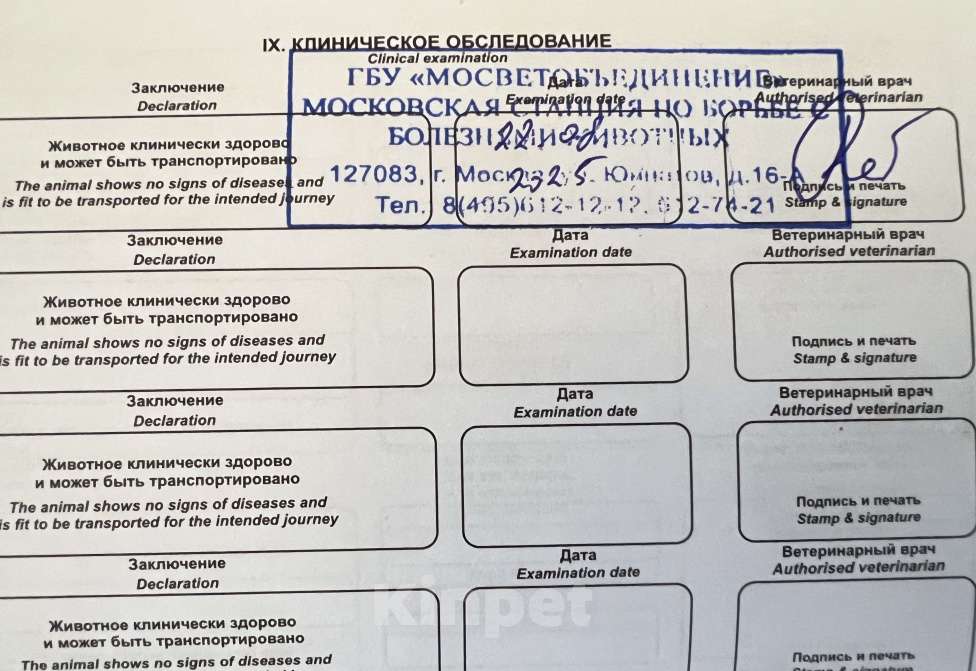 IX. КЛИНИЧЕСКОЕ ОБСЛЕДОВАНИЕ
Clinical examination
Заключение Дата Ветеринарный врач
Declaration Examination date Authorised veterinarian
ГБУ «МОСВЕТОБЪЕДИНЕНИЕ»
МОСКОВСКАЯ СТАНЦИЯ ПО БОРЬБЕ С
БОЛЕЗНЯМИ ЖИВОТНЫХ
127083, г. Москва, ул. Юннатов, д.16-А
Тел. 8(495)612-12-12, 612-74-21
Животное клинически здорово
и может быть транспортировано
The animal shows no signs of diseases and
is fit to be transported for the intended journey
22
2025
Подпись и печать
Stamp & signature
Заключение Дата Ветеринарный врач
Declaration Examination date Authorised veterinarian
Животное клинически здорово
и может быть транспортировано
The animal shows no signs of diseases and
is fit to be transported for the intended journey
Подпись и печать
Stamp & signature
Заключение Дата Ветеринарный врач
Declaration Examination date Authorised veterinarian
Животное клинически здорово
и может быть транспортировано
The animal shows no signs of diseases and
is fit to be transported for the intended journey
Подпись и печать
Stamp & signature
Заключение Дата Ветеринарный врач
Declaration Examination date Authorised veterinarian
Животное клинически здорово
и может быть транспортировано
The animal shows no signs of diseases and
Подпись и печать
Stamp & signature
Kinpet